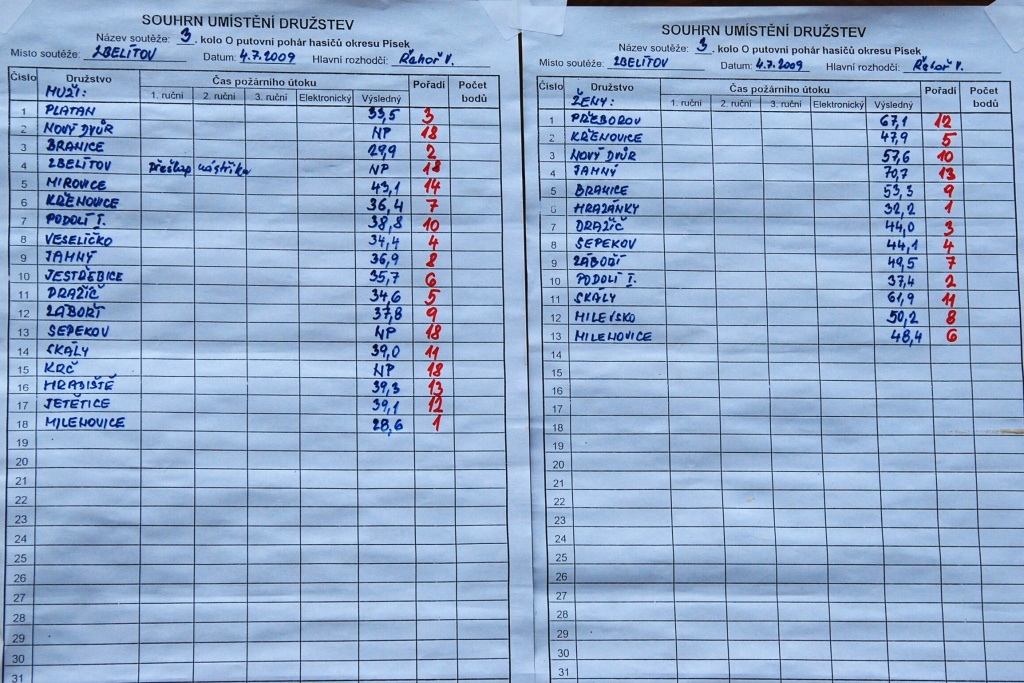 SOUHRN UMÍSTĚNÍ DRUŽSTEV
Název soutěže: 3. kolo O putovní pohár hasičů okresu Písek
Místo soutěže: ZBELÍTOV Datum: 4.7.2009 Hlavní rozhodčí: Řahoř V.
Číslo Družstvo Čas požárního útoku Pořadí Počet bodů
MUŽI: 1. ruční 2. ruční 3. ruční Elektronický Výsledný
1 PLATAN 33,5 3
2 NOVÝ DVŮR NP 18
3 BRANICE 29,9 2
4 ZBELÍTOV přešlap nástřik NP 18
5 MIROVICE 43,1 14
6 KŘENOVICE 36,4 7
7 PODOLÍ I. 38,8 10
8 VESELÍČKO 34,4 4
9 JAMNÝ 36,9 8
10 JESTŘEBICE 35,7 6
11 DRAŽÍČ 34,6 5
12 ZÁBOŘÍ 37,8 9
13 SEPEKOV NP 18
14 SKÁLY 39,0 11
15 KRČ NP 18
16 HRADIŠTĚ 39,3 13
17 JETĚTICE 39,1 12
18 MILENOVICE 28,6 1
19
20
21
22
23
24
25
26
27
28
29
30
31
SOUHRN UMÍSTĚNÍ DRUŽSTEV
Název soutěže: 3. kolo O putovní pohár hasičů okresu Písek
Místo soutěže: ZBELÍTOV Datum: 4.7.2009 Hlavní rozhodčí: Řahoř V.
Číslo Družstvo Čas požárního útoku Pořadí Počet bodů
ŽENY: 1. ruční 2. ruční 3. ruční Elektronický Výsledný
1 PŘEBOROV 67,1 12
2 KŘENOVICE 47,9 5
3 NOVÝ DVŮR 57,6 10
4 JAMNÝ 70,7 13
5 BRANICE 53,3 9
6 HRAZÁNKY 32,2 1
7 DRAŽÍČ 44,0 3
8 SEPEKOV 44,1 4
9 ZÁBOŘÍ 49,5 7
10 PODOLÍ I. 37,4 2
11 SKÁLY 61,9 11
12 MILEVSKO 50,2 8
13 MILENOVICE 48,4 6
14
15
16
17
18
19
20
21
22
23
24
25
26
27
28
29
30
31